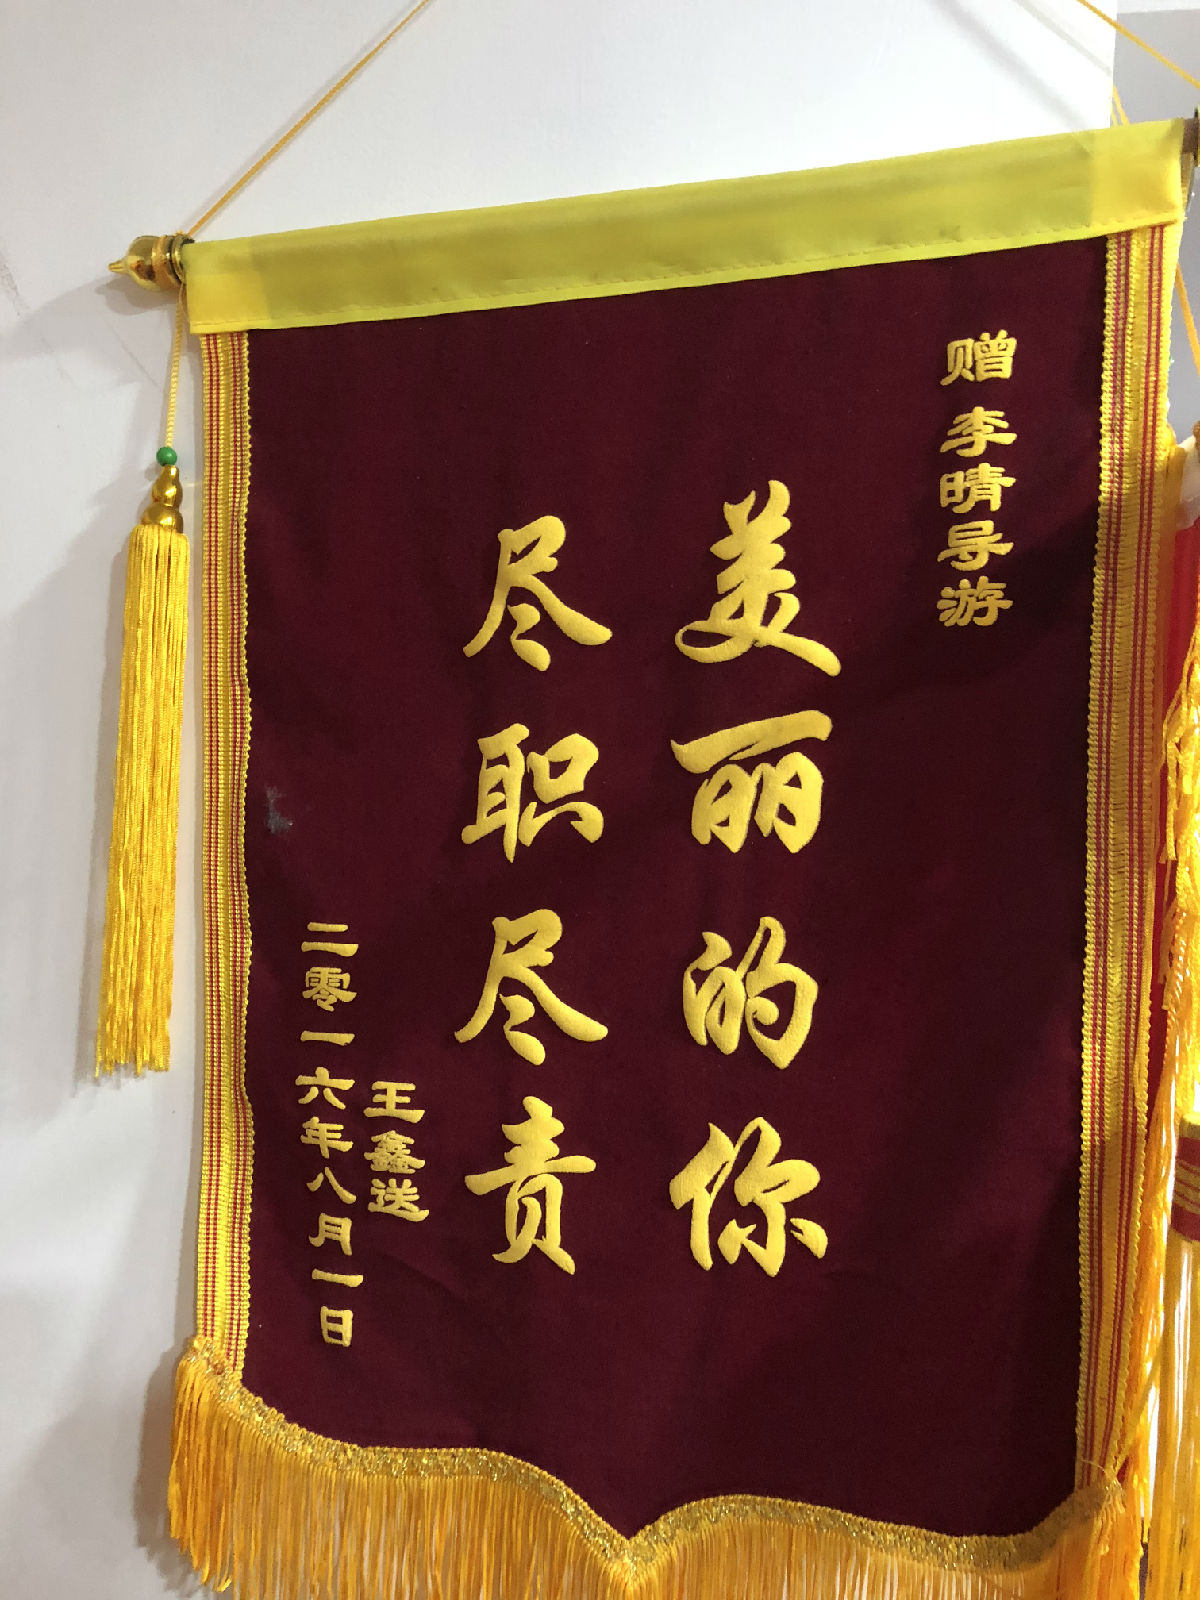 赠 李晴导游
美丽的你
尽职尽责
王鑫送
二零一六年八月一日